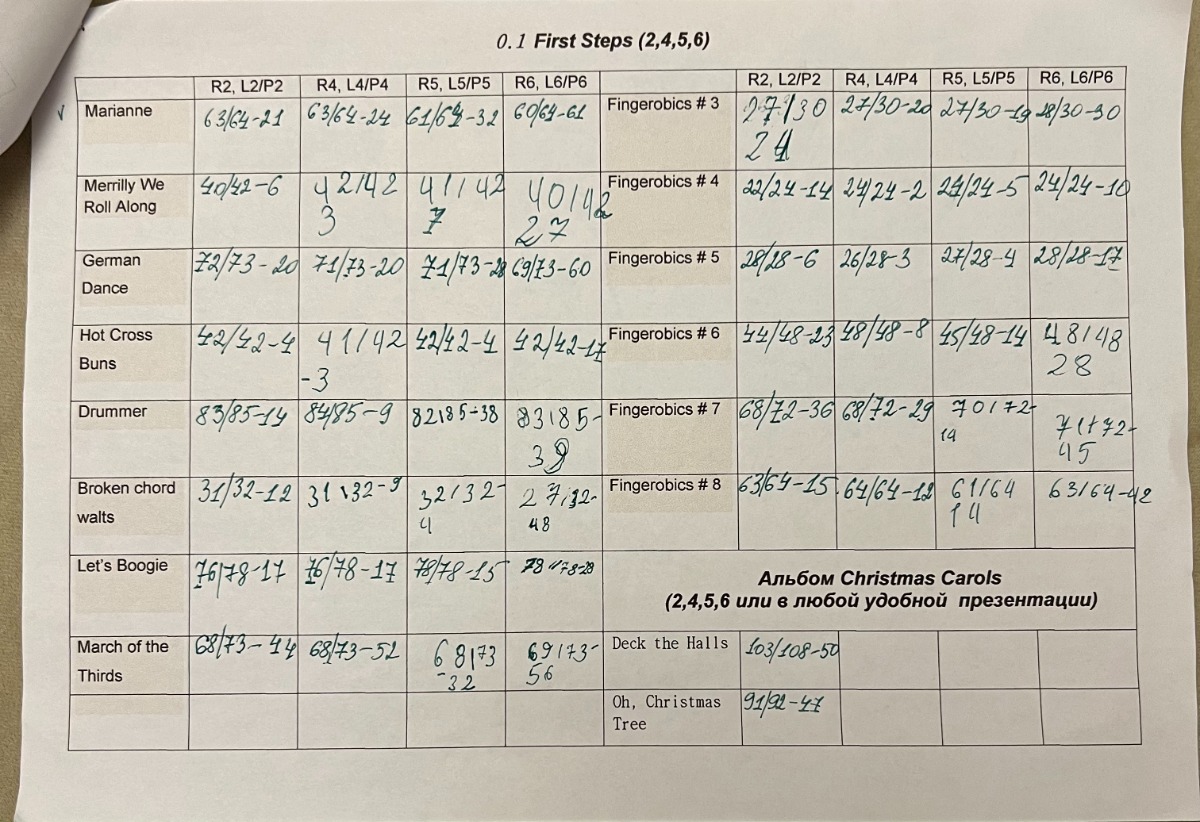 0.1 First Steps (2,4,5,6)
R2, L2/P2 R4, L4/P4 R5, L5/P5 R6, L6/P6 R2, L2/P2 R4, L4/P4 R5, L5/P5 R6, L6/P6
Marianne 63/64-21 63/64-24 61/64-32 60/64-61 Fingerobics # 3 27/30 27/30-20 27/30-19 28/30-30
24
Merrilly We 40/42-6 42/42 41/42 40/42 Fingerobics # 4 22/24-14 24/24-2 24/24-5 24/24-10
Roll Along 3 7 27
German 72/73-20 71/73-20 71/73-28 69/73-60 Fingerobics # 5 28/28-6 26/28-3 27/28-4 28/28-17
Dance
Hot Cross 42/42-4 41/42 42/42-4 42/42-17 Fingerobics # 6 44/48-23 48/48-8 45/48-14 48/48
Buns -3 28
Drummer 83/85-19 84/85-9 82/85-38 83/85- Fingerobics # 7 68/72-36 68/72-29 70/72- 71/72-
39 14 45
Broken chord 31/32-12 31/32-9 32/32- 27/32- Fingerobics # 8 63/64-15 64/64-12 61/64 63/64-42
walts 4 48 14
Let's Boogie 76/78-17 76/78-17 78/78-15 78/78-28 Альбом Christmas Carols
(2,4,5,6 или в любой удобной презентации)
March of the 68/73-44 68/73-52 68/73 69/73- Deck the Halls 103/108-50
Thirds -32 56
Oh, Christmas 91/92-47
Tree